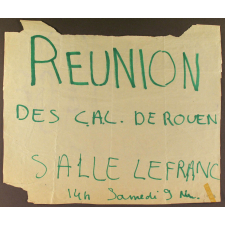 REUNION
DES ÇAL. DE ROUEN
SALLE LEFRANC
14h Samedi 9